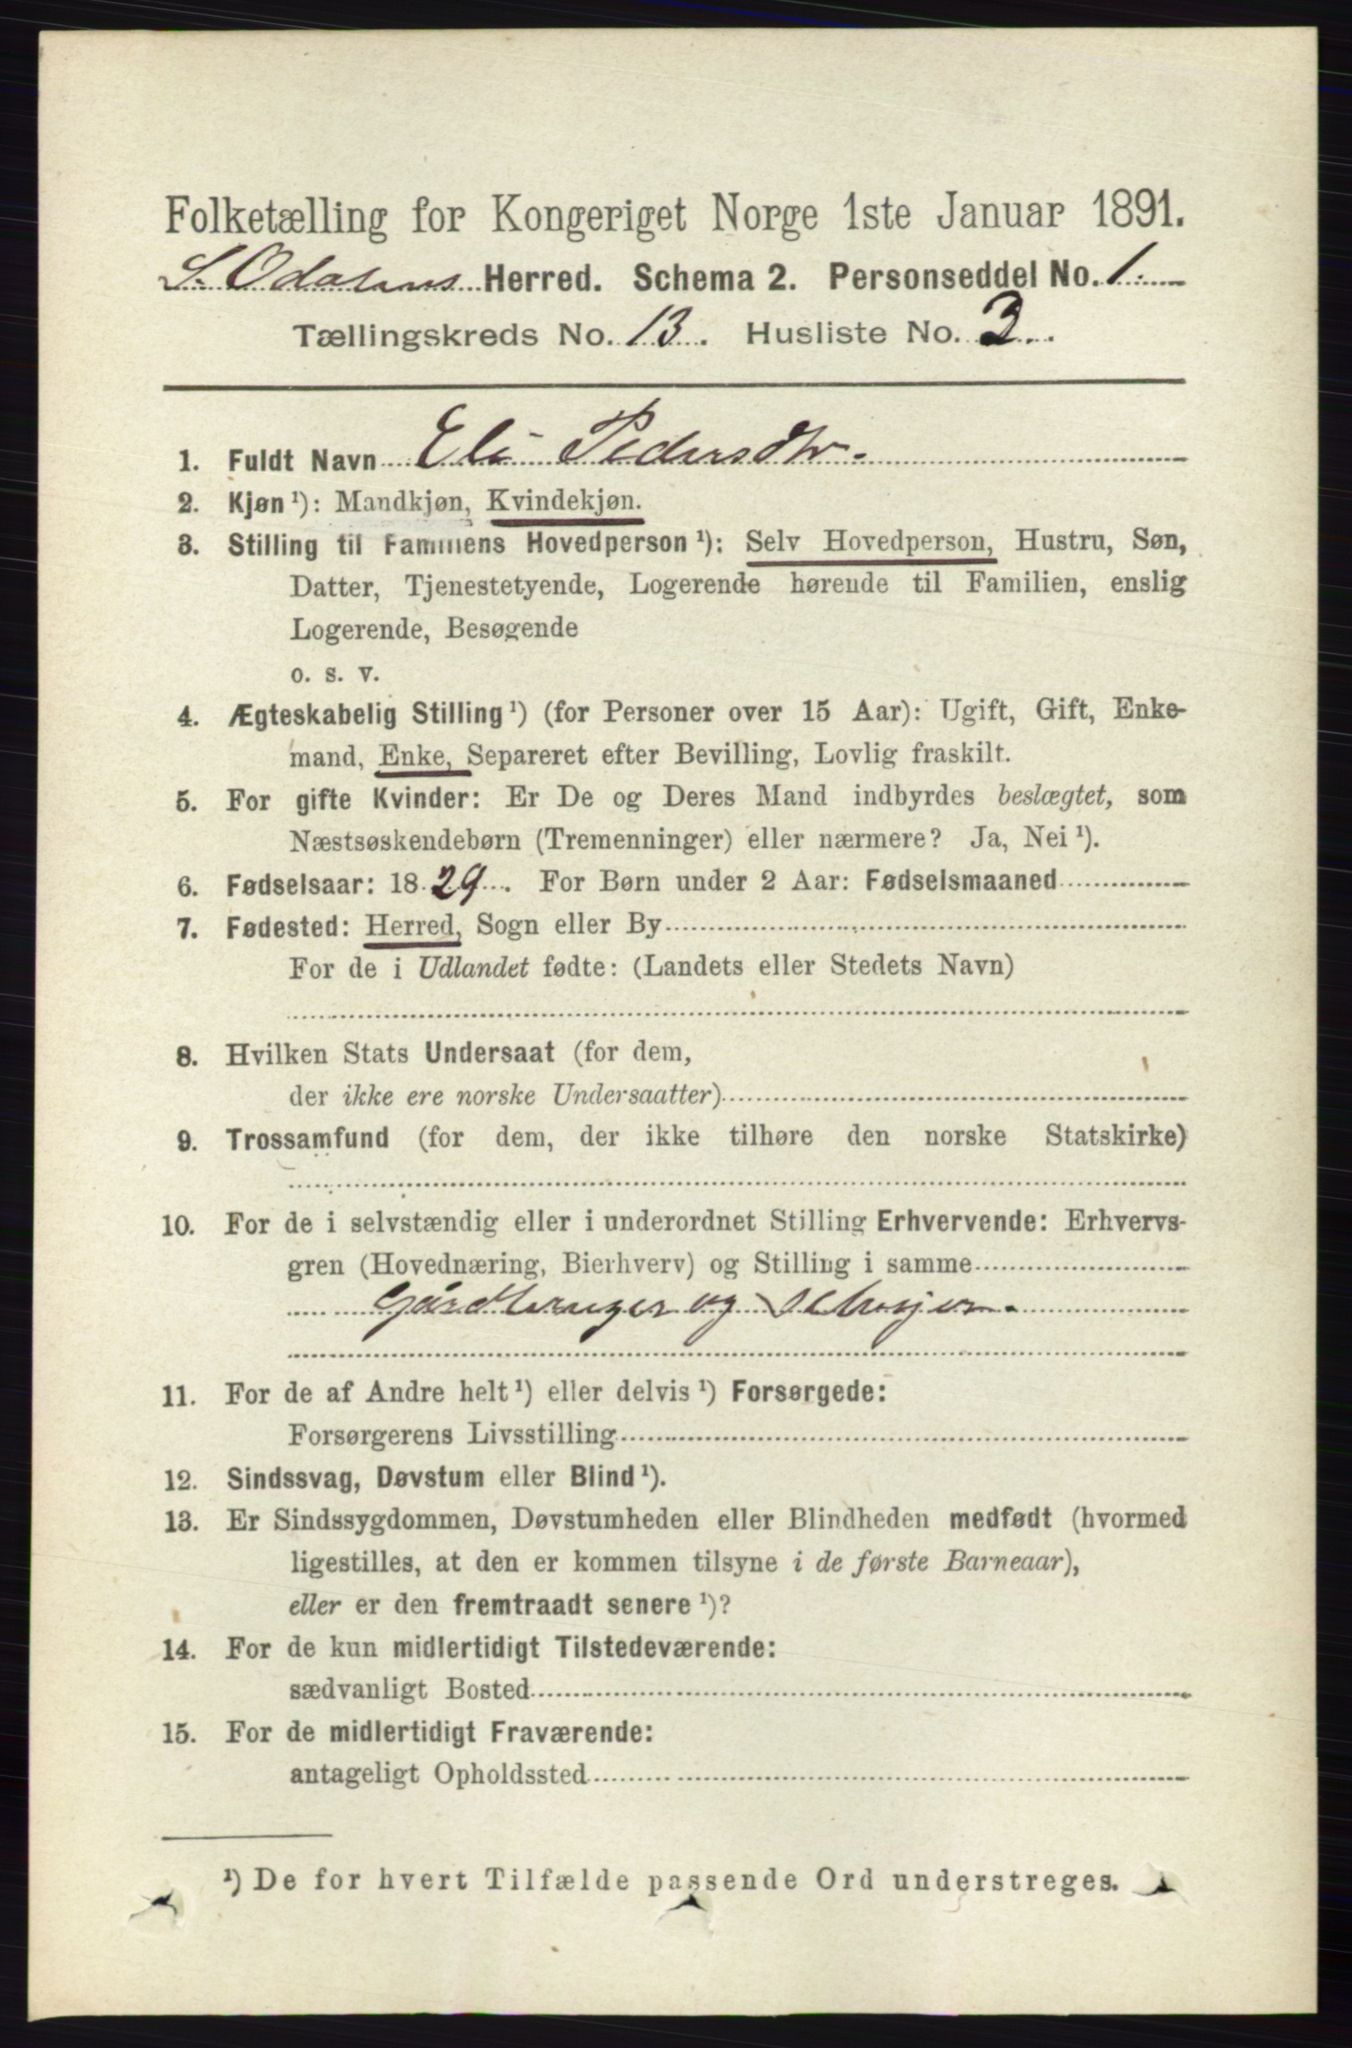 Folketælling for Kongeriget Norge 1ste Januar 1891.
S. Odalens Herred. Schema 2. Personseddel No. 1.
Tællingskreds No. 13. Husliste No. 3.
1. Fuldt Navn Eli Pedersdtr.
2. Kjøn ¹): Mandkjøn, Kvindekjøn.
3. Stilling til Familiens Hovedperson ¹): Selv Hovedperson, Hustru, Søn,
Datter, Tjenestetyende, Logerende hørende til Familien, enslig
Logerende, Besøgende
o. s. v.
4. Ægteskabelig Stilling ¹) (for Personer over 15 Aar): Ugift, Gift, Enke-
mand, Enke, Separeret efter Bevilling, Lovlig fraskilt.
5. For gifte Kvinder: Er De og Deres Mand indbyrdes beslægtet, som
Næstsøskendebørn (Tremenninger) eller nærmere? Ja, Nei ¹).
6. Fødselsaar: 1829. For Børn under 2 Aar: Fødselsmaaned
7. Fødested: Herred, Sogn eller By
For de i Udlandet fødte: (Landets eller Stedets Navn)
8. Hvilken Stats Undersaat (for dem,
der ikke ere norske Undersaatter)
9. Trossamfund (for dem, der ikke tilhøre den norske Statskirke)
10. For de i selvstændig eller i underordnet Stilling Erhvervende: Erhvervs-
gren (Hovednæring, Bierhverv) og Stilling i samme
Gårdbruger og Selveier.
11. For de af Andre helt ¹) eller delvis ¹) Forsørgede:
Forsørgerens Livsstilling
12. Sindssvag, Døvstum eller Blind ¹).
13. Er Sindssygdommen, Døvstumheden eller Blindheden medfødt (hvormed
ligestilles, at den er kommen tilsyne i de første Barneaar),
eller er den fremtraadt senere ¹)?
14. For de kun midlertidigt Tilstedeværende:
sædvanligt Bosted
15. For de midlertidigt Fraværende:
antageligt Opholdssted
¹) De for hvert Tilfælde passende Ord understreges.